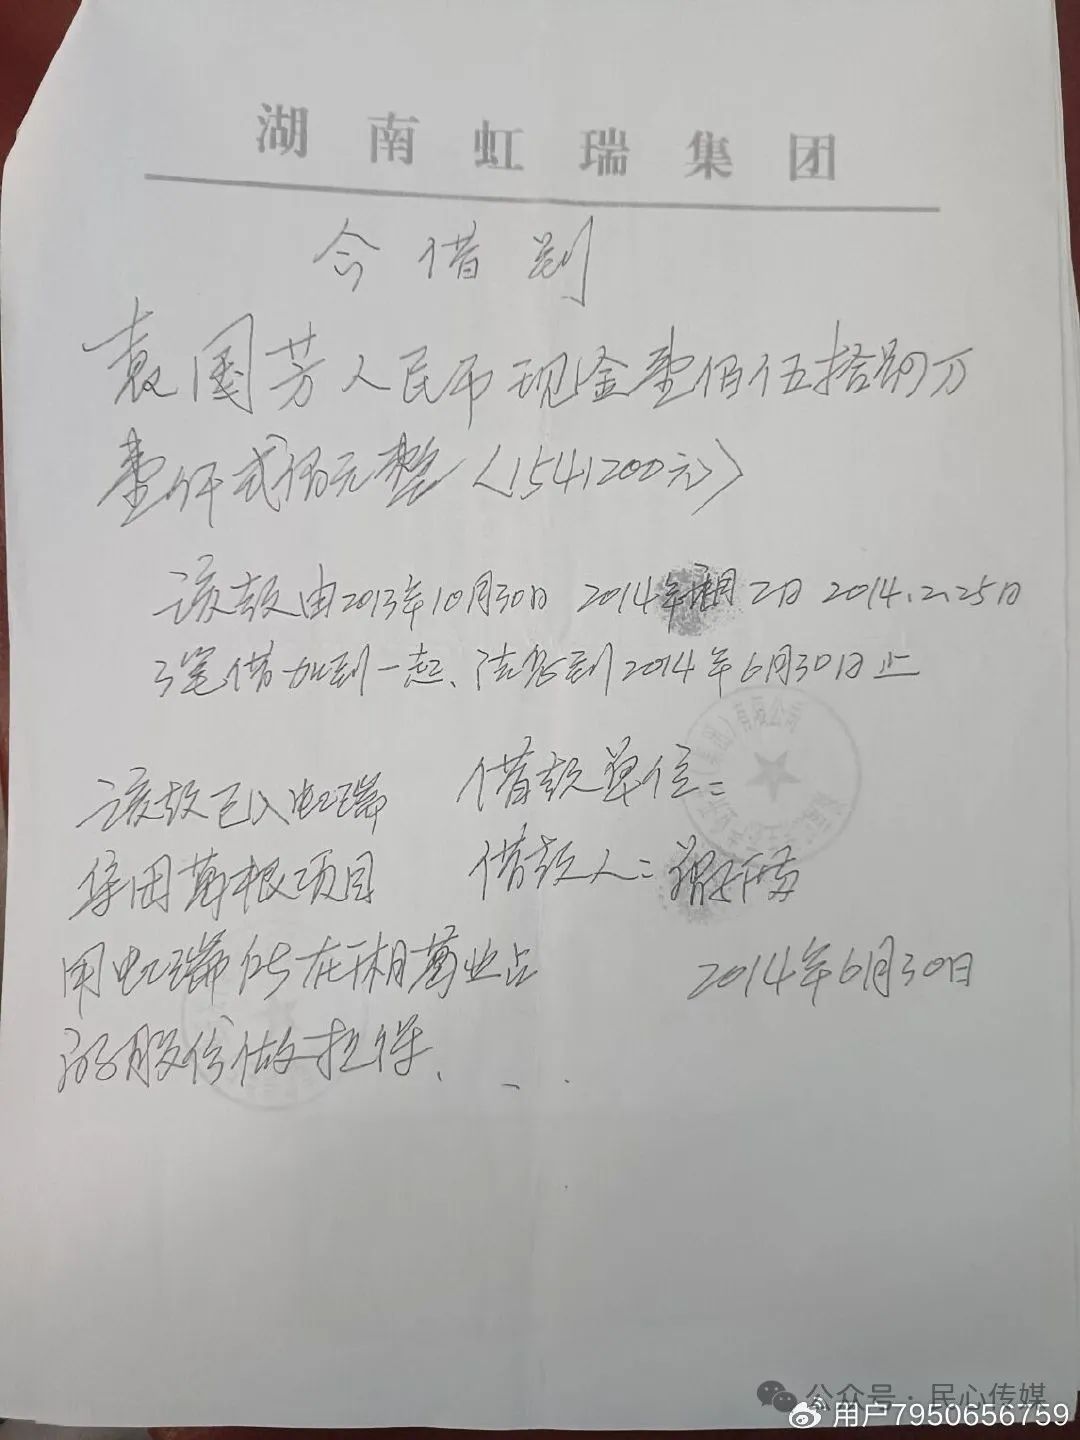 湖南虹瑞集团
今借到
袁国芳人民币现金壹佰伍拾肆万
壹仟贰佰元整(1541200元)
该款由2013年10月30日 2014年 月2日 2014.2.25日
3笔借加到一起、结息到2014年6月30日止
借款单位:
有限公司
该款已入虹瑞
集团葛根项目
用虹瑞 在湘葛业占
股份做担保.
借款人:
2014年6月30日
公众号·民心传媒
用户7950656759